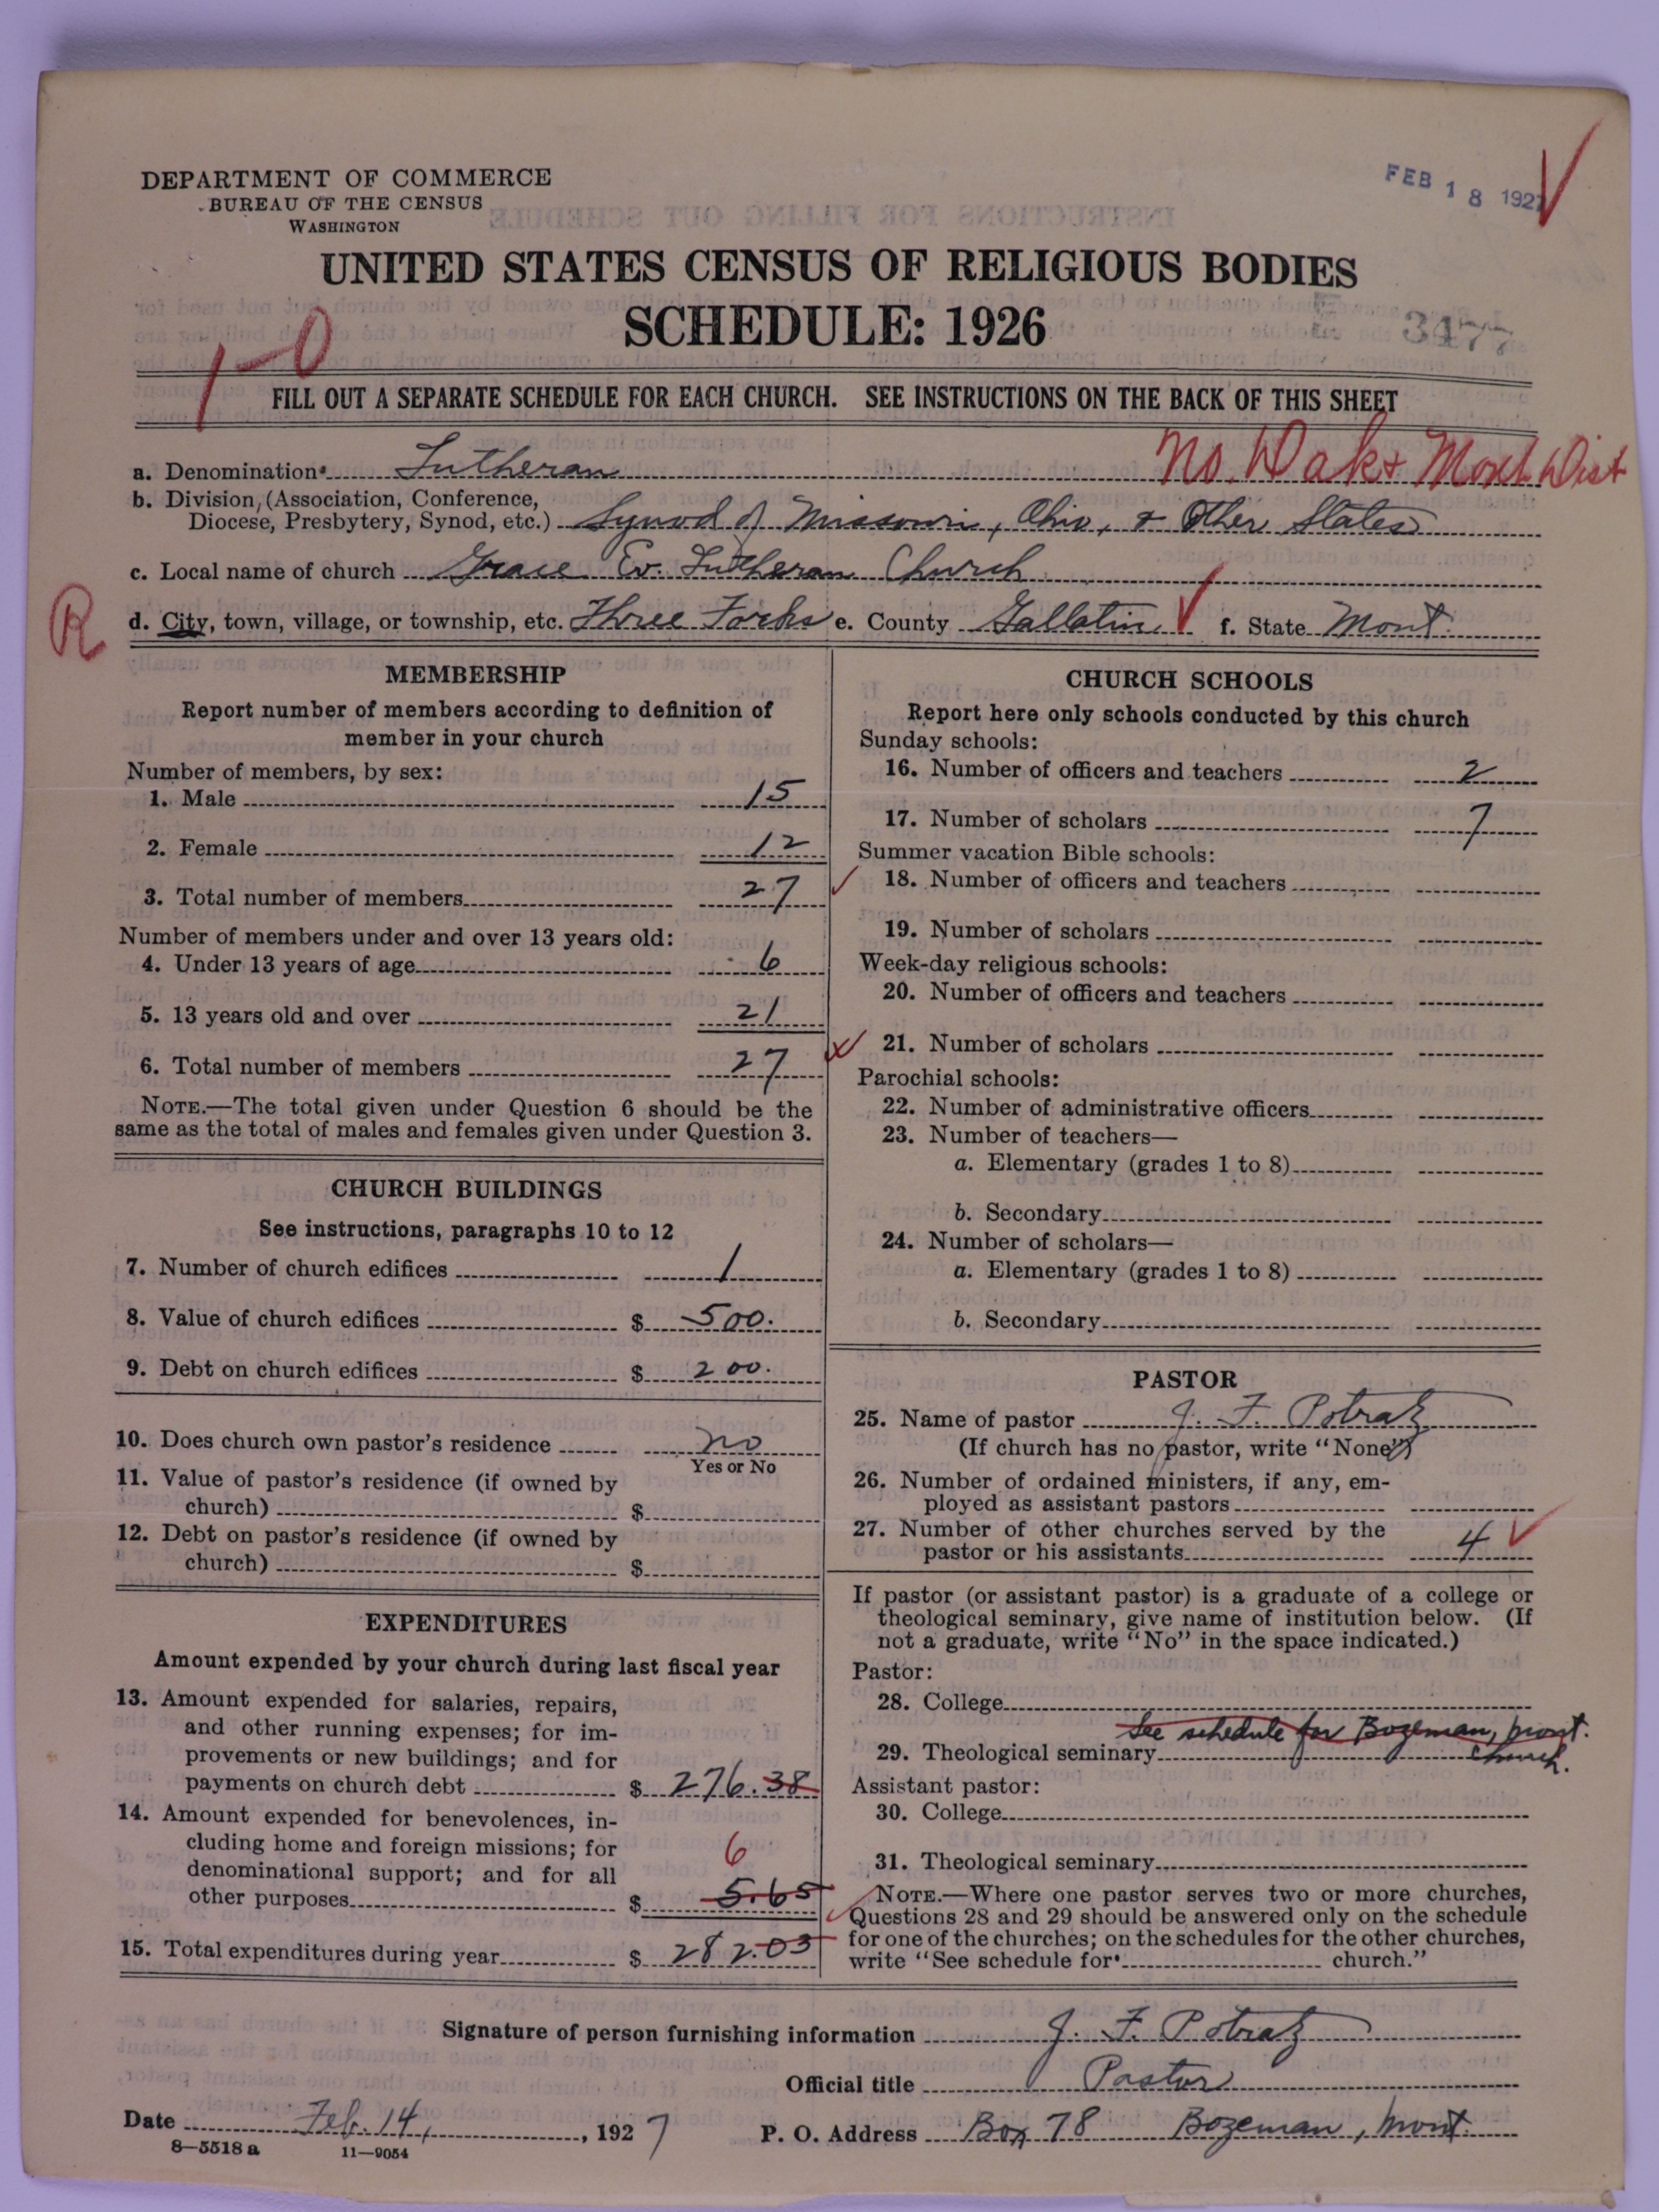 DEPARTMENT OF COMMERCE
BUREAU OF THE CENSUS
WASHINGTON
FEB 18 1927
UNITED STATES CENSUS OF RELIGIOUS BODIES
SCHEDULE: 1926
3477
1-0
FILL OUT A SEPARATE SCHEDULE FOR EACH CHURCH. SEE INSTRUCTIONS ON THE BACK OF THIS SHEET
No. Dak & Mont Dist
a. Denomination Lutheran
b. Division, (Association, Conference,
Diocese, Presbytery, Synod, etc.) Synod of Missouri, Ohio, & Other States
c. Local name of church Grace Ev. Lutheran Church
R
d. City, town, village, or township, etc. Three Forks e. County Gallatin f. State Mont.
MEMBERSHIP
Report number of members according to definition of
member in your church
Number of members, by sex:
1. Male 15
2. Female 12
3. Total number of members 27
Number of members under and over 13 years old:
4. Under 13 years of age 6
5. 13 years old and over 21
6. Total number of members 27
NOTE.—The total given under Question 6 should be the
same as the total of males and females given under Question 3.
CHURCH BUILDINGS
See instructions, paragraphs 10 to 12
7. Number of church edifices 1
8. Value of church edifices $ 500.
9. Debt on church edifices $ 200.
10. Does church own pastor's residence no
Yes or No
11. Value of pastor's residence (if owned by
church) $
12. Debt on pastor's residence (if owned by
church) $
EXPENDITURES
Amount expended by your church during last fiscal year
13. Amount expended for salaries, repairs,
and other running expenses; for im-
provements or new buildings; and for
payments on church debt $ 276.38
14. Amount expended for benevolences, in-
cluding home and foreign missions; for
denominational support; and for all
6
other purposes $ 5.65
15. Total expenditures during year $ 282.03
CHURCH SCHOOLS
Report here only schools conducted by this church
Sunday schools:
16. Number of officers and teachers 2
17. Number of scholars 7
Summer vacation Bible schools:
18. Number of officers and teachers
19. Number of scholars
Week-day religious schools:
20. Number of officers and teachers
21. Number of scholars
Parochial schools:
22. Number of administrative officers
23. Number of teachers—
a. Elementary (grades 1 to 8)
b. Secondary
24. Number of scholars—
a. Elementary (grades 1 to 8)
b. Secondary
PASTOR
25. Name of pastor J. F. Potratz
(If church has no pastor, write "None")
26. Number of ordained ministers, if any, em-
ployed as assistant pastors
27. Number of other churches served by the
pastor or his assistants 4
If pastor (or assistant pastor) is a graduate of a college or
theological seminary, give name of institution below. (If
not a graduate, write "No" in the space indicated.)
Pastor:
28. College
See schedule for Bozeman, Mont.
29. Theological seminary church.
Assistant pastor:
30. College
31. Theological seminary
NOTE.—Where one pastor serves two or more churches,
Questions 28 and 29 should be answered only on the schedule
for one of the churches; on the schedules for the other churches,
write "See schedule for church."
Signature of person furnishing information J. F. Potratz
Official title Pastor
Date Feb. 14, 1927 P. O. Address Box 78 Bozeman, Mont.
8—5518 a 11—9054